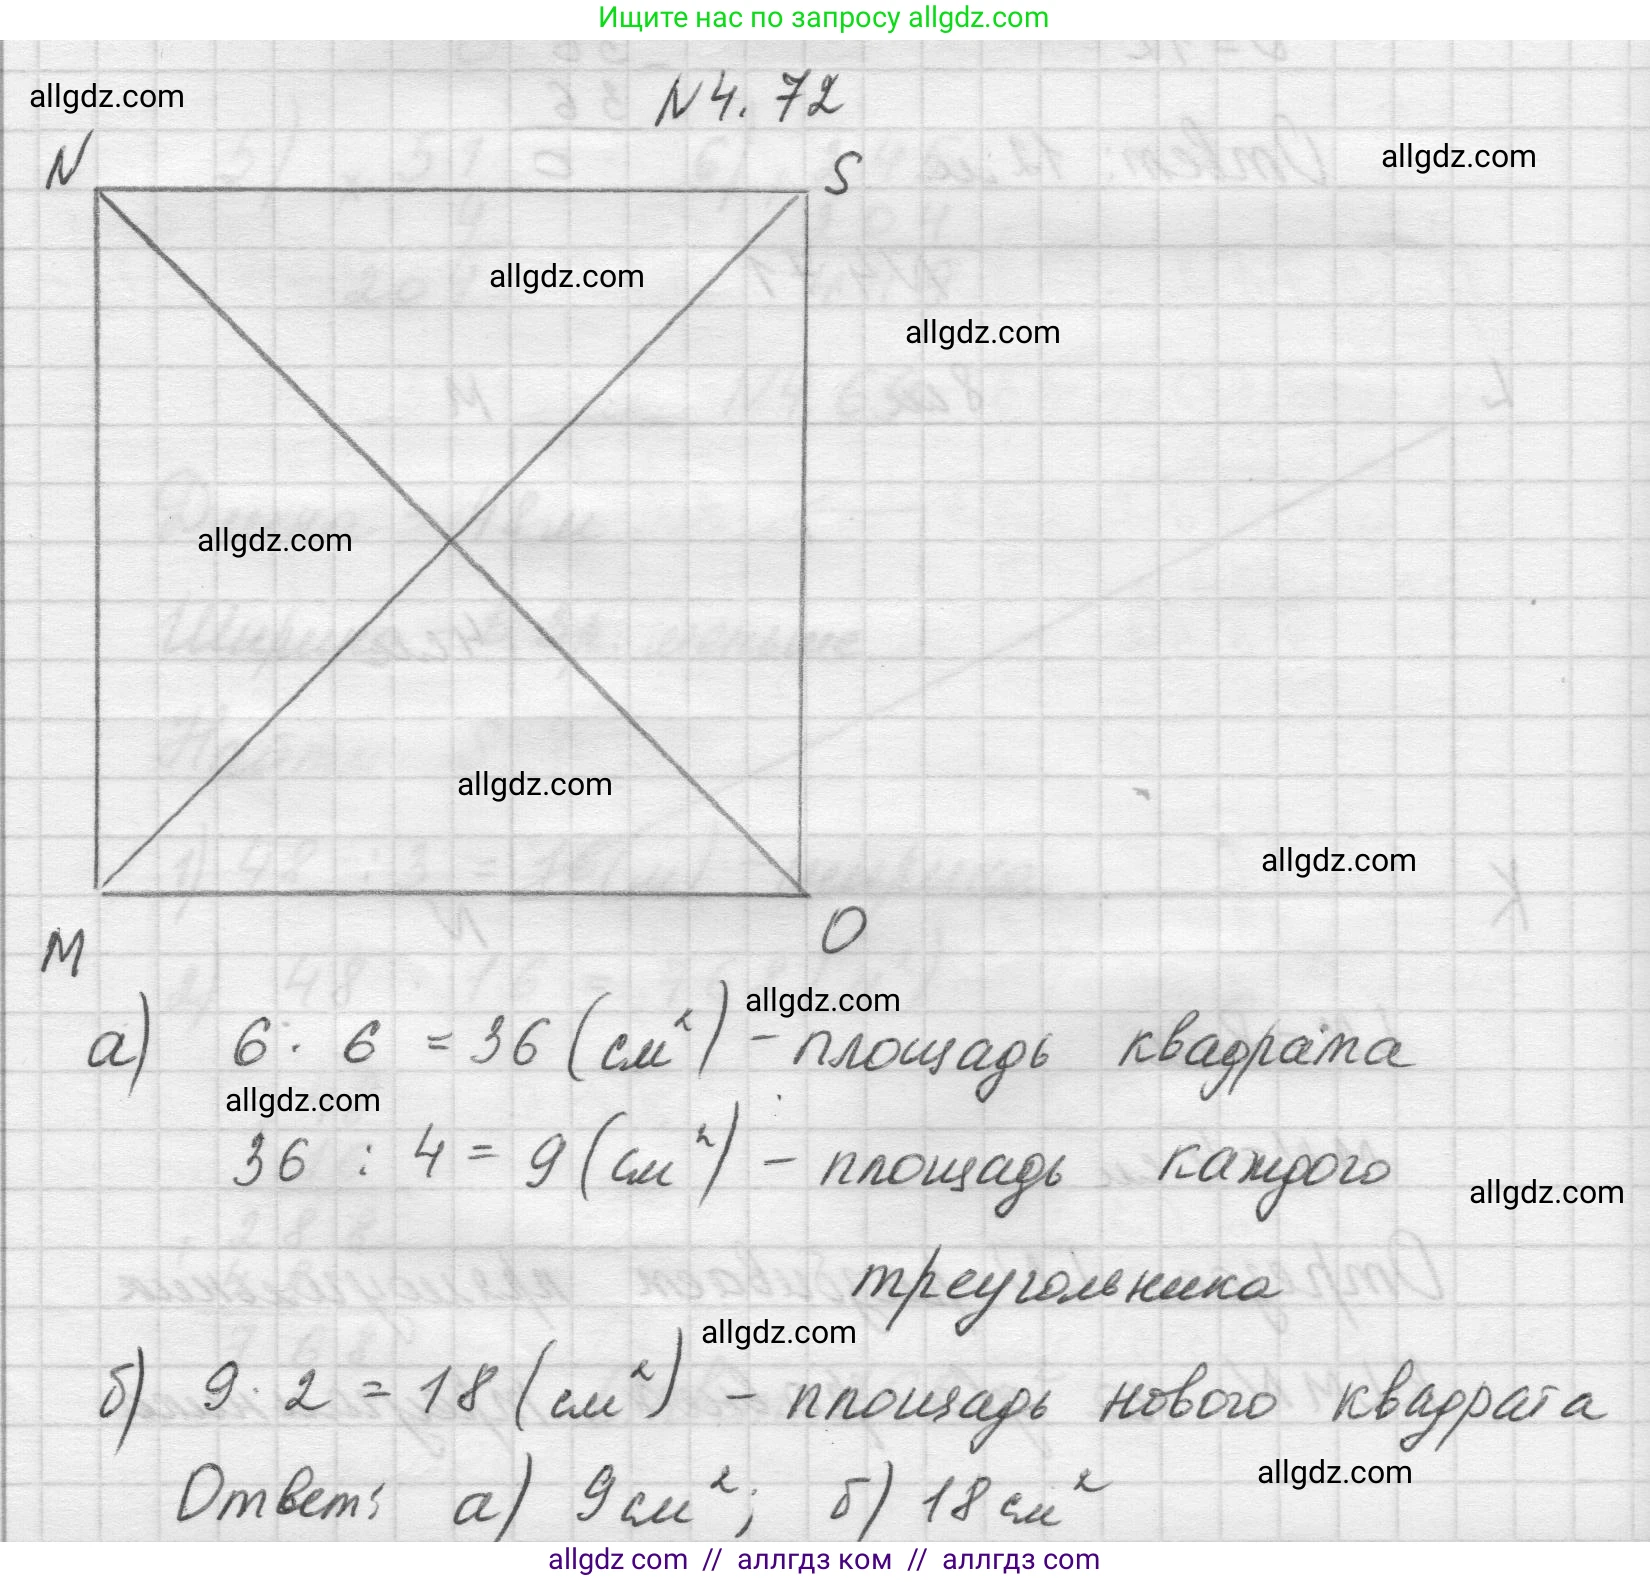 Ищите нас по запросу allgdz.com
allgdz.com
N4.72
allgdz.com
N
S
allgdz.com
allgdz.com
allgdz.com
allgdz.com
allgdz.com
M
O
allgdz.com
а) 6 · 6 = 36 (см²) – площадь квадрата
allgdz.com
36 : 4 = 9 (см²) – площадь каждого
allgdz.com
треугольника
allgdz.com
б) 9 · 2 = 18 (см²) – площадь нового квадрата
allgdz.com
Ответ: а) 9 см²; б) 18 см²
allgdz com // аллгдз ком // аллгдз com